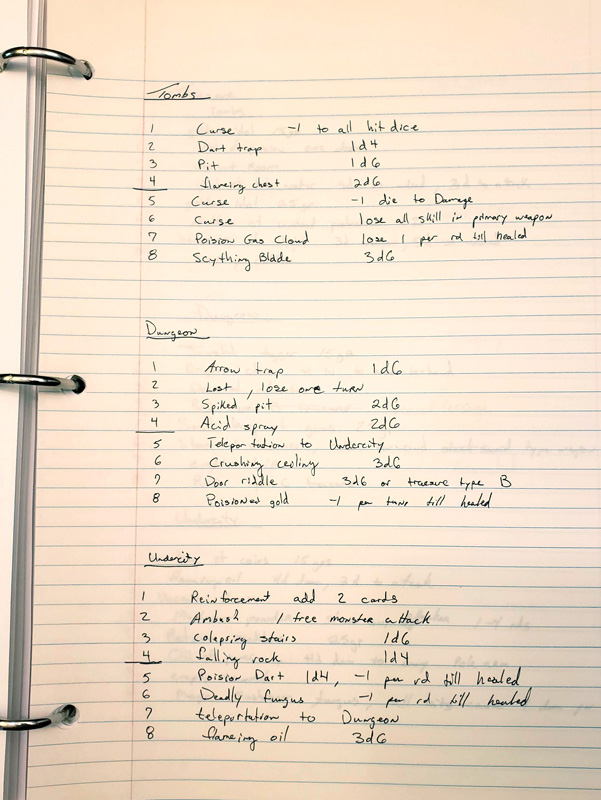 Tombs
1 Curse -1 to all hit dice
2 Dart trap 1d4
3 Pit 1d6
4 flareing chest 2d6
5 Curse -1 die to Damage
6 Curse lose all skill in primary weapon
7 Poision Gas Cloud lose 1 per rd till healed
8 Scything Blade 3d6
Dungeon
1 Arrow trap 1d6
2 Lost, lose one turn
3 Spiked pit 2d6
4 Acid spray 2d6
5 Teleportation to Undercity
6 Crushing ceiling 3d6
7 Door riddle 3d6 or treasure type B
8 Poisioned gold -1 per turn till healed
Undercity
1 Reinforcement add 2 cards
2 Ambush 1 free monster attack
3 colapsing stairs 1d6
4 falling rock 1d4
5 Poision Dart 1d4, -1 per rd till healed
6 Deadly fungus -1 per rd till healed
7 teleportation to Dungeon
8 flareing oil 3d6